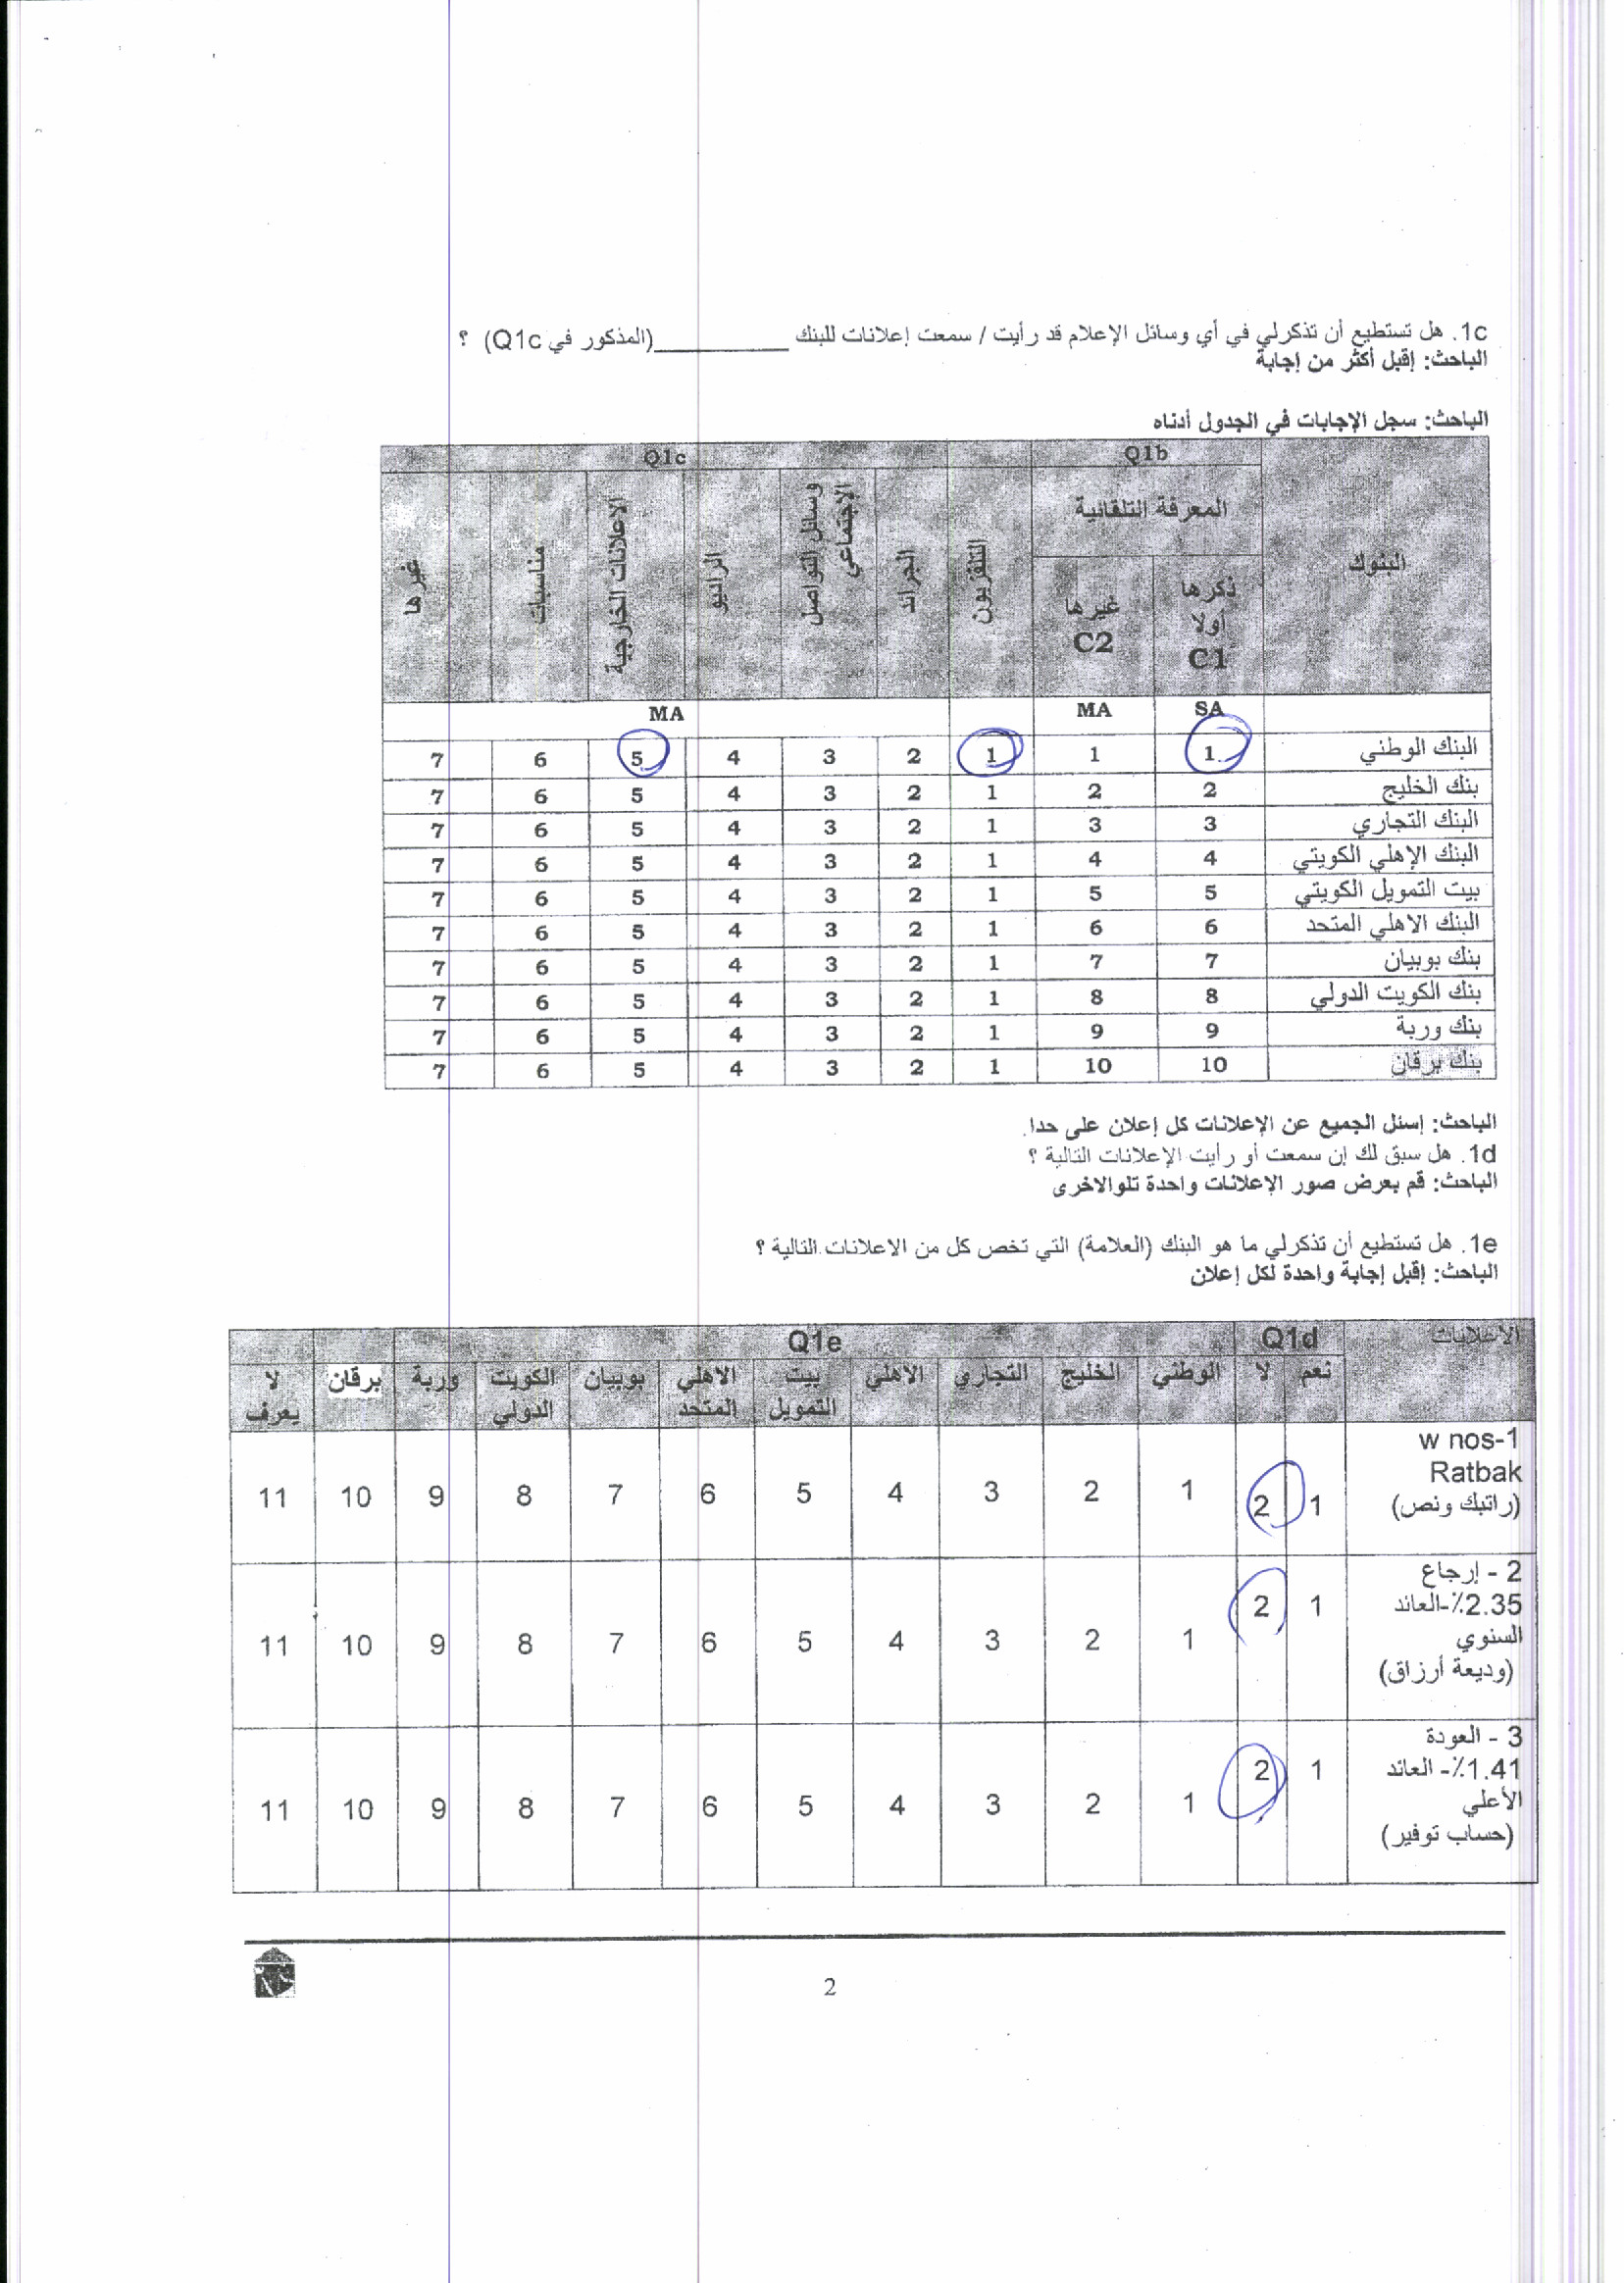 1c. هل تستطيع أن تذكرلي في أي وسائل الإعلام قد رأيت / سمعت إعلانات للبنك __________(المذكور في Q1c) ؟
الباحث: إقبل أكثر من إجابة
الباحث: سجل الإجابات في الجدول أدناه
البنوك Q1b Q1c
المعرفة التلقائية
ذكرها أولا C1 غيرها C2 التلفزيون الجرائد وسائل التواصل الإجتماعي الراديو الاعلانات الخارجية مناسبات غيرها
SA MA MA
البنك الوطني 1 1 1 2 3 4 5 6 7
بنك الخليج 2 2 1 2 3 4 5 6 7
البنك التجاري 3 3 1 2 3 4 5 6 7
البنك الإهلي الكويتي 4 4 1 2 3 4 5 6 7
بيت التمويل الكويتي 5 5 1 2 3 4 5 6 7
البنك الاهلي المتحد 6 6 1 2 3 4 5 6 7
بنك بوبيان 7 7 1 2 3 4 5 6 7
بنك الكويت الدولي 8 8 1 2 3 4 5 6 7
بنك وربة 9 9 1 2 3 4 5 6 7
بنك برقان 10 10 1 2 3 4 5 6 7
الباحث: إسئل الجميع عن الإعلانات كل إعلان على حدا.
1d. هل سبق لك إن سمعت أو رأيت الإعلانات التالية ؟
الباحث: قم بعرض صور الإعلانات واحدة تلوالاخرى
1e. هل تستطيع أن تذكرلي ما هو البنك (العلامة) التي تخص كل من الاعلانات التالية ؟
الباحث: إقبل إجابة واحدة لكل إعلان
الاعلانات Q1d Q1e
نعم لا الوطني الخليج التجاري الاهلي بيت التمويل الاهلي المتحد بوبيان الكويت الدولي وربة برقان لا يعرف
w nos-1
Ratbak
(راتبك ونص) 1 2 1 2 3 4 5 6 7 8 9 10 11
2 - إرجاع
2.35٪-العائد
السنوي
(وديعة أرزاق) 1 2 1 2 3 4 5 6 7 8 9 10 11
3 - العودة
1.41٪- العائد
الأعلي
(حساب توفير) 1 2 1 2 3 4 5 6 7 8 9 10 11
2